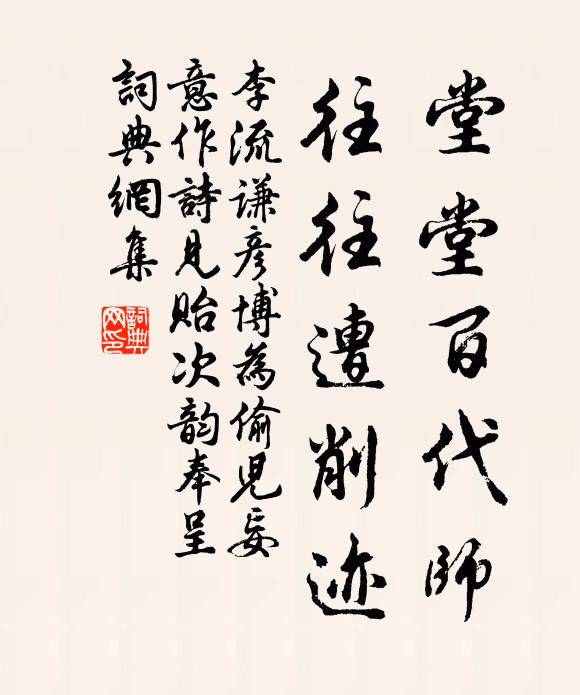 堂堂百代師
往往遭削迹
李流謙彦博為偷兒妄
意作詩見貽次韵奉呈
詞典網集
詞典网印